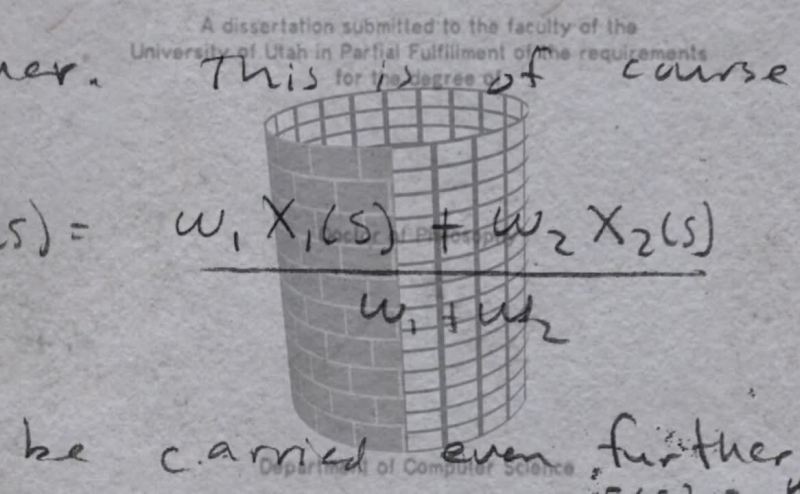 A dissertation submitted to the faculty of the
University of Utah in Partial Fulfillment of the requirements
for the degree of
ner. This is of course
Doctor of Philosophy
(s) = w₁ X₁(s) + w₂ X₂(s)
w₁ + w₂
be carried even further
Department of Computer Science